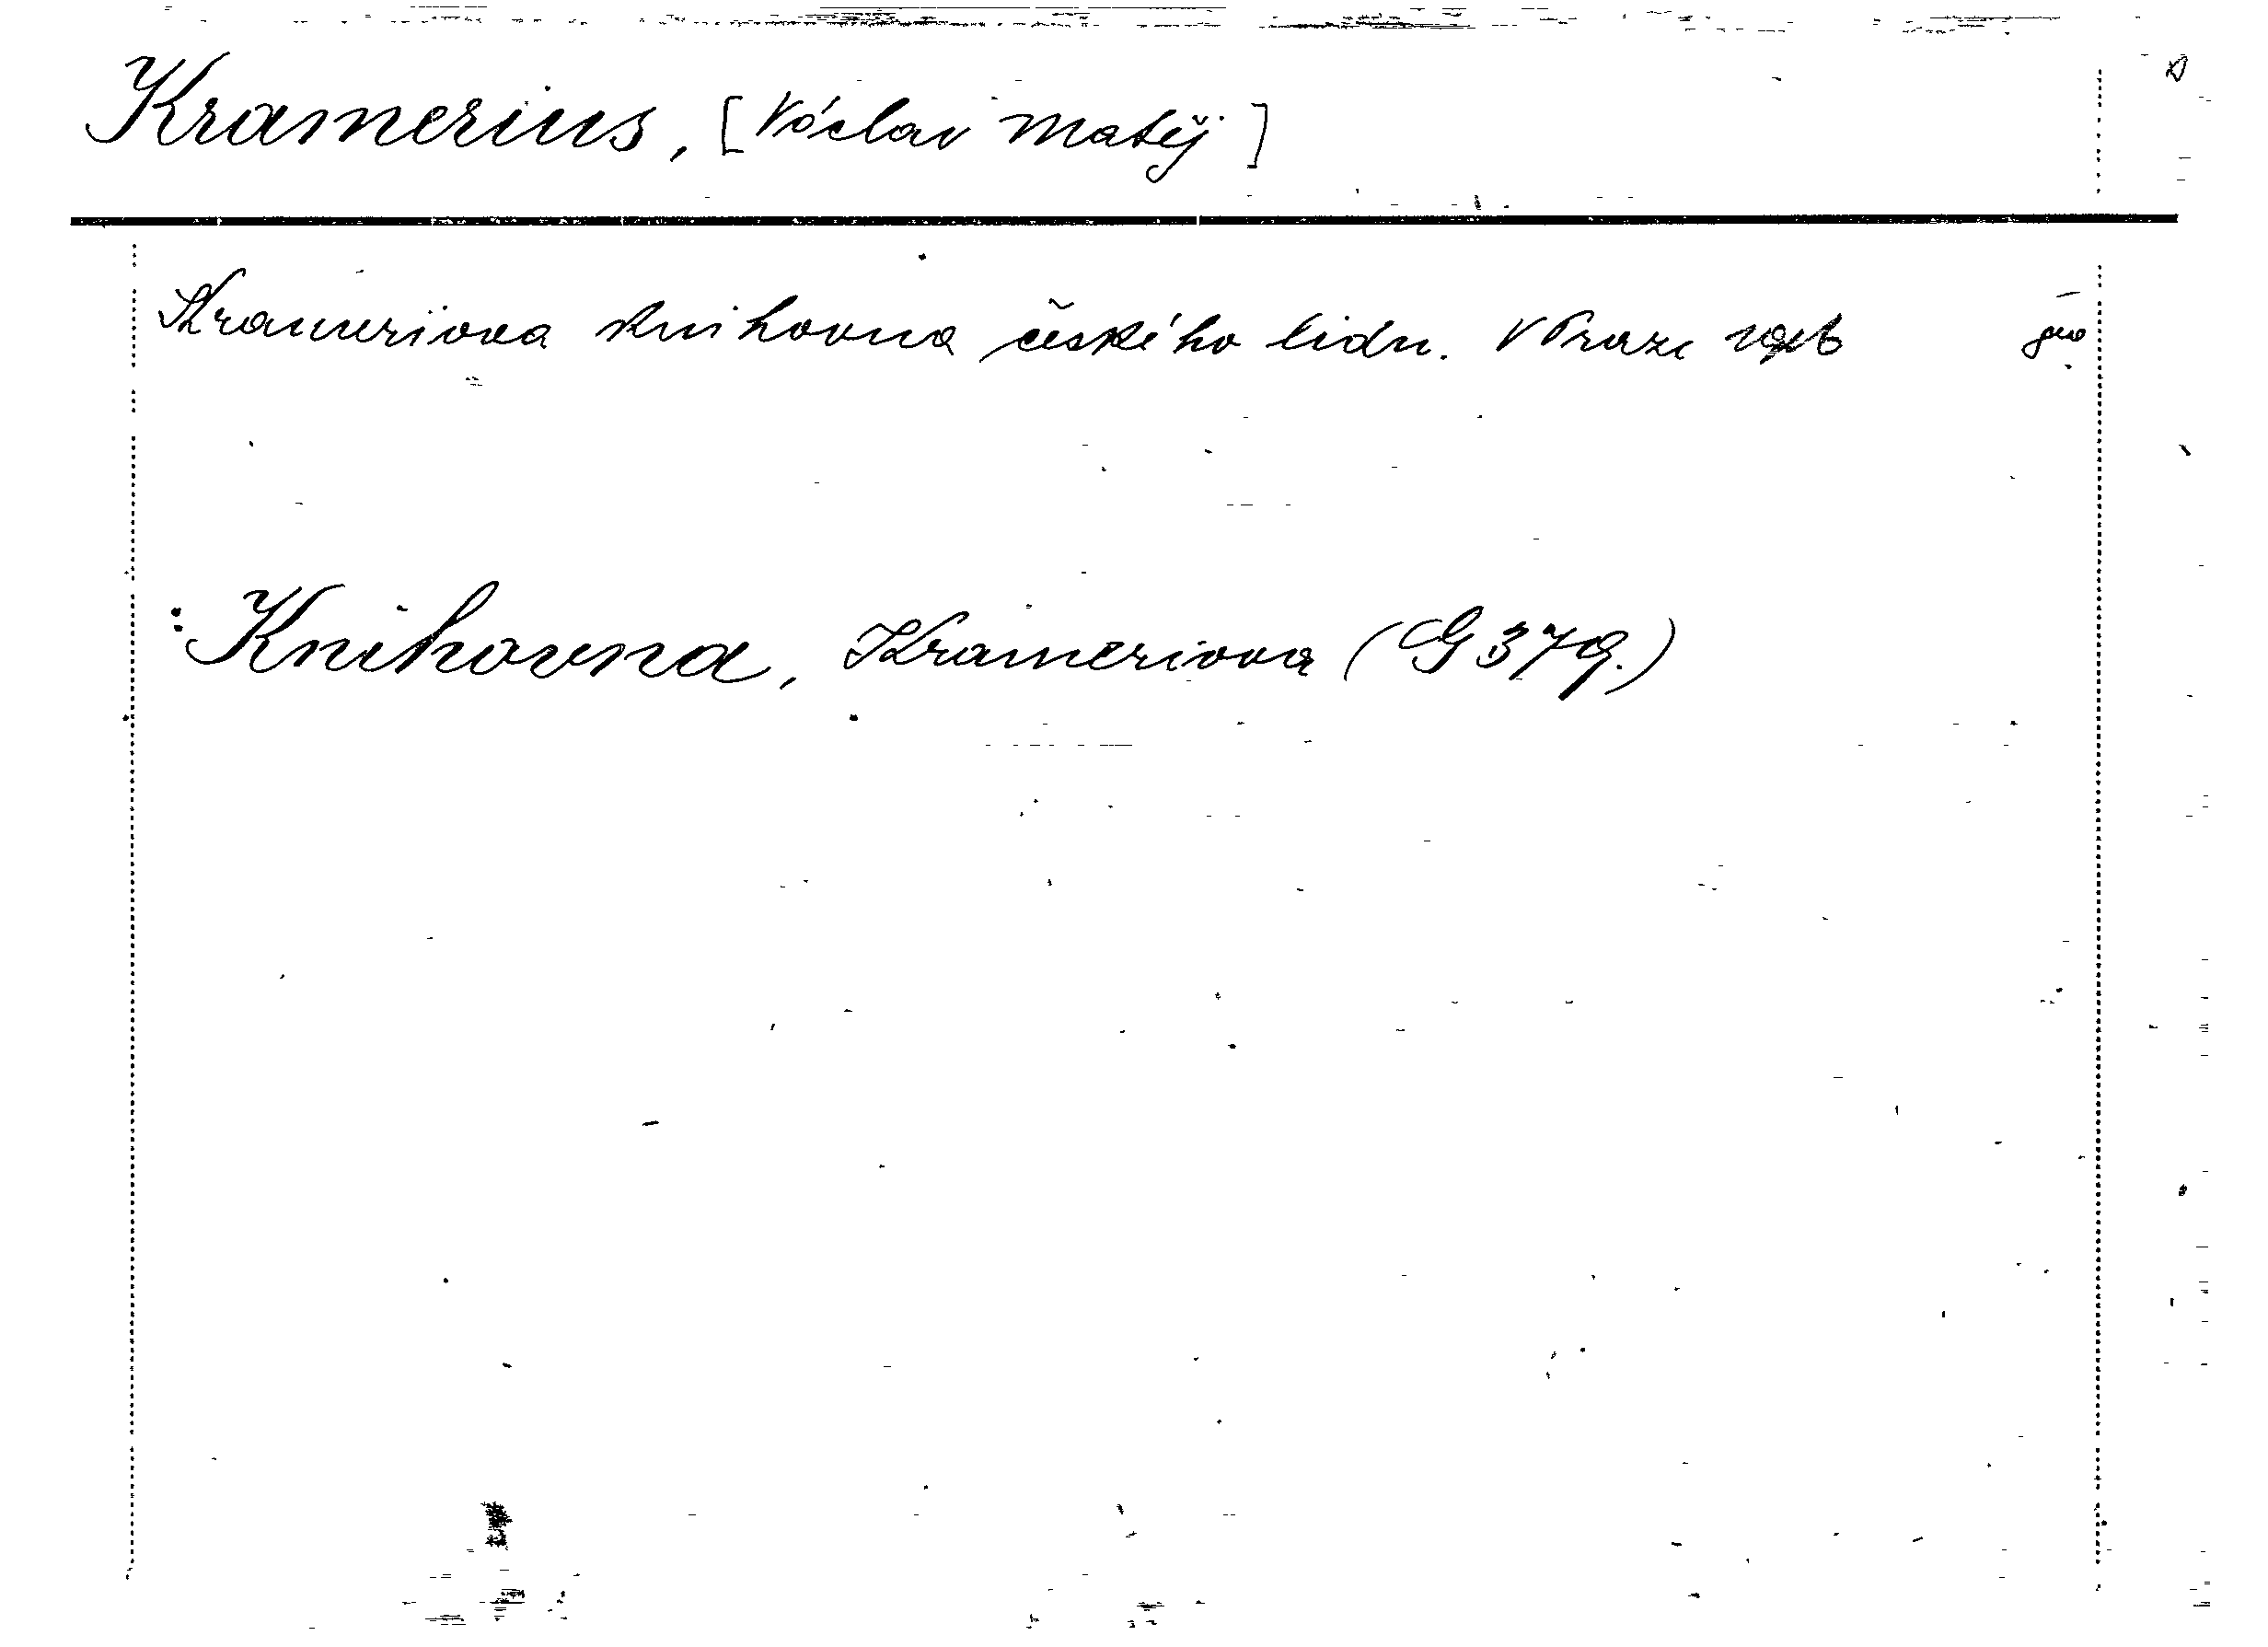 Kramerius, [Václav Matěj]
Krameriova knihovna českého lidu. V Praze
: Knihovna, Krameriova (G 379.)